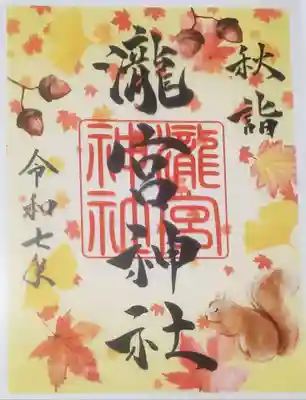 秋詣
瀧宮神社
瀧宮
神社
令和七年